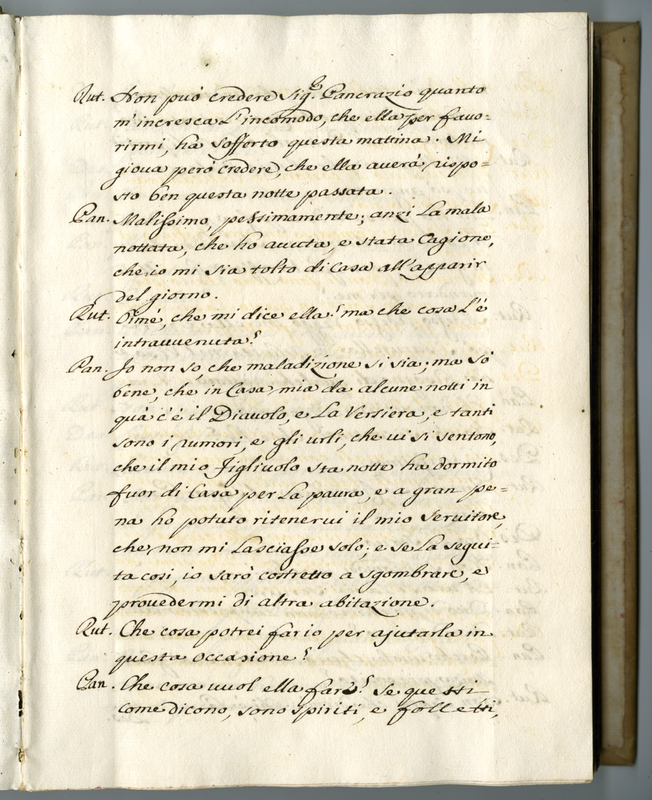 Rut. Non può credere Sig.r Pancrazio quanto
m'incresca L'incomodo, che ella per favo=
rirmi, ha sofferto questa mattina. Mi
giova però credere, che ella averà ripo=
sto ben questa notte passata.
Pan. Malissimo, pessimamente; anzi La mala
nottata, che ho avuta, e stata Cagione,
che io mi sia tolto di Casa all'apparir
del giorno.
Rut. Oimé, che mi dice ella? ma che cosa L'é
intravvenuta?
Pan. Io non so, che maladizione si sia; ma sò
bene, che in Casa mia da alcune notti in
quà c'é il Diavolo, e La Versiera, e tanti
sono i rumori, e gli urli, che vi si sentono,
che il mio Figliuolo sta notte ha dormito
fuor di Casa per La paura, e a gran pe=
na ho potuto ritenervi il mio Servitore,
che non mi Lasciasse solo; e se La segui=
ta cosi, io sarò costretto a sgombrare, e
provedermi di altra abitazione.
Rut. Che cosa potrei far io per ajutarla in
questa occasione?
Pan. Che cosa vuol ella fare? Se questi
come dicono, sono spiriti, e folletti,